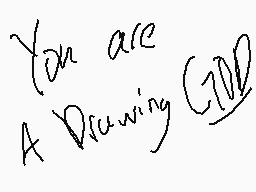 You are
A Drawing GOD